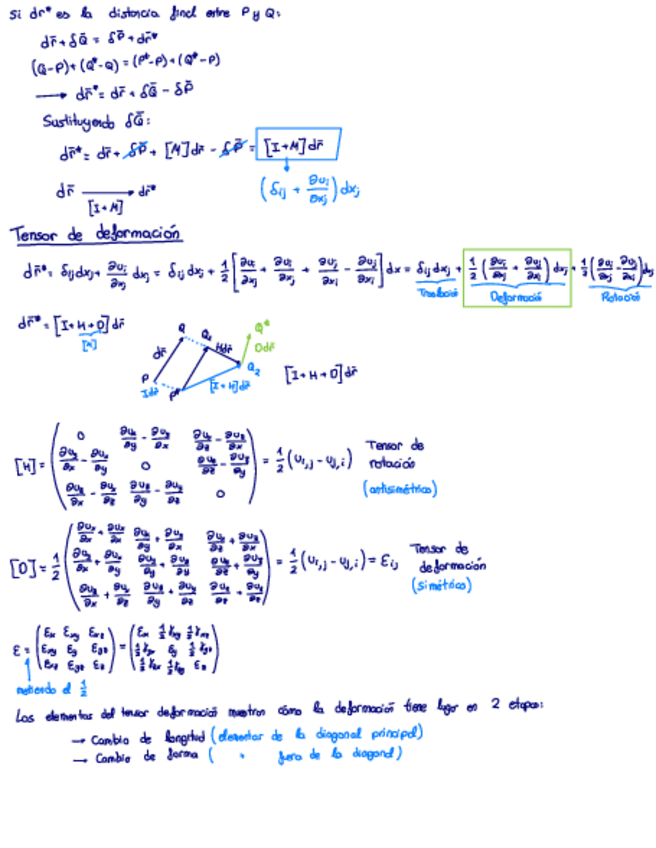 Si dr* es la distancia final entre P y Q:
dr̄ + δQ̄ = δP̄ + dr̄*
(Q-P)+(Q*-Q) = (P*-P)+(Q*-P)
→ dr̄* = dr̄ + δQ̄ - δP̄
Sustituyendo δQ̄:
dr̄* = dr̄ + δP̄ + [M]dr̄ - δP̄ = [I+M]dr̄
dr̄ → dr̄*
[I+M]
(δij + ∂ui/∂xj) dxj
Tensor de deformación
dr̄* = δij dxj + ∂ui/∂xj dxj = δij dxj + 1/2 [∂ui/∂xj + ∂ui/∂xj + ∂uj/∂xi - ∂uj/∂xi] dx = δij dxj + 1/2 (∂ui/∂xj + ∂uj/∂xi) dxj + 1/2 (∂ui/∂xj - ∂uj/∂xi) dxj
Traslación Deformación Rotación
dr̄* = [I+H+D]dr̄
[M]
Q Q₁ Q* Q₂
dr̄ Hdr̄ Ddr̄
P P* Idr̄ [I+H]dr̄
[I+H+D]dr̄
[H] = ( 0 ∂ux/∂y - ∂uy/∂x ∂ux/∂z - ∂uz/∂x
∂uy/∂x - ∂ux/∂y 0 ∂uy/∂z - ∂uz/∂y
∂uz/∂x - ∂ux/∂z ∂uz/∂y - ∂uy/∂z 0 ) = 1/2 (ui,j - uj,i) Tensor de rotación
(antisimétrico)
[D] = 1/2 ( ∂ux/∂x + ∂ux/∂x ∂ux/∂y + ∂uy/∂x ∂ux/∂z + ∂uz/∂x
∂uy/∂x + ∂ux/∂y ∂uy/∂y + ∂uy/∂y ∂uy/∂z + ∂uz/∂y
∂uz/∂x + ∂ux/∂z ∂uz/∂y + ∂uy/∂z ∂uz/∂z + ∂uz/∂z ) = 1/2 (ui,j - uj,i) = Eij Tensor de deformación
(simétrico)
metiendo el 1/2
Los elementos del tensor deformación muestran cómo la deformación tiene lugar en 2 etapas:
→ Cambio de longitud (elementos de la diagonal principal)
→ Cambio de forma ( " fuera de la diagonal)